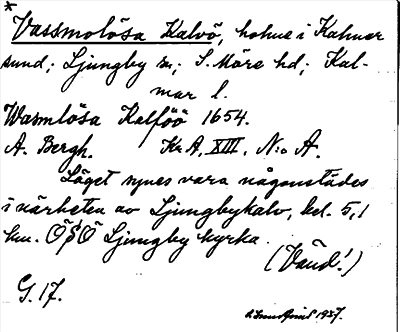 *
Vassmolösa Kalvö, holme i Kalmar
sund; Ljungby sn; S. Möre hd; Kal-
mar l.
Wasmlösa Kalföö 1654.
A. Bergh. Kr. A, XIII, N:o A.
Läget synes vara någonstädes
i närheten av Ljungbykalv, bel. 5,1
km. ÖSÖ Ljungby kyrka.
(Vänd!)
G. 17.
1927.